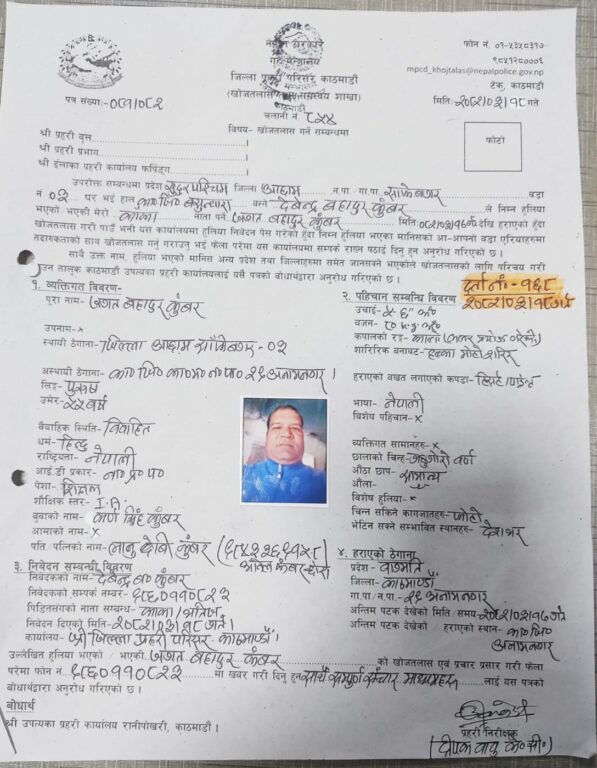 नेपाल सरकार
गृह मन्त्रालय
जिल्ला प्रहरी परिसर, काठमाडौं
(खोजतलास समन्वय शाखा)
काठमाडौं
फोन नं. ०१-५३५८३१७
९८५१२८०००६
mpcd_khojtalas@nepalpolice.gov.np
टेकु, काठमाडौं
पत्र संख्याः-०८१।०८२
मितिः २०८२।०३।१८ गते
चलानी नं
विषय- खोजतलास गर्ने सम्बन्धमा
फोटो
श्री प्रहरी वृत्त
श्री प्रहरी प्रभाग
श्री ईलाका प्रहरी कार्यालय फर्पिङ्ग
उपरोक्त सम्बन्धमा प्रदेश सुदुरपश्चिम जिल्ला अछाम न.पा. गा.पा. साफेबगर वडा
नं ०३ घर भई हाल का.जि. बस्ने देबेन्द्र बहादुर कुंबर ले निम्न हुलिया
भएको भएकी मेरो काका नाता पर्ने जगत बहादुर कुंबर मिति देखि हराएको हुँदा
खोजतलास गरी पाउँ भनी यस कार्यालयमा हुलिया निवेदन पेस गरेको हुँदा निम्न हुलिया भएका मानिसको आ-आफ्नो वडा एरियाहरुमा
तदारुकताको साथ खोजतलास गर्नु गराउनु भई फेला परेमा यस कार्यालयमा सम्पर्क राख्न पठाई दिनु हुन अनुरोध गरिएको छ ।
साथै उक्त नाम, हुलिया भएको मानिस अन्य प्रदेश तथा जिल्लाहरुमा समेत जानसक्ने भएकोले खोजतलासको लागि परिचय गरी
दिनु हुन तालुक काठमाडौं उपत्यका प्रहरी कार्यालयलाई यसै पत्रको बोधार्थद्वारा अनुरोध गरिएको छ ।
दर्ता नं- १६८
२०८२।०३।१८ गते
१. व्यक्तिगत विवरण-
पुरा नाम- जगत बहादुर कुंबर
उपनाम-x
स्थायी ठेगाना- जिल्ला अछाम साँफेबगर - ०३
अस्थायी ठेगाना- का० जि० का० म० न० पा० २९ अनामनगर ।
लिङ्ग- पुरुष
उमेर- ५५ वर्ष
वैवाहिक स्थिति- विवाहित
धर्म- हिन्दु
राष्ट्रियता- नेपाली
आई.डी प्रकार- ना० प्र० प०
पेशा- शिक्षक
शैक्षिक स्तर- I.A.
बुवाको नाम- कर्ण सिंह कुंबर
आमाको नाम-x
पति/पत्निको नाम- लानु देवी कुंबर
२. पहिचान सम्बन्धि विवरण
उचाई- ५'६"
वजन- ८० k.g
कपालको रङ- कालो
शारिरिक बनावट- हल्का मोटो शरिर
हराएको वखत लगाएको कपडा-
भाषा- नेपाली
विशेष पहिचान-x
व्यक्तिगत सामानहरु-x
छालाको चिन्ह- गहुगोरो वर्ण
औंठा छाप- सामान्य
औंला-
विशेष हुलिया-x
चिन्न सकिने कागजातहरु- फोटो
भेटिन सक्ने सम्भावित स्थानहरु- देशभर
३. निवेदन सम्बन्धी विवरण
निवेदकको नाम- देबेन्द्र ब० कुंबर
निवेदकको सम्पर्क नम्बर- ९८६०११०८२३
पिडितसंगको नाता सम्बन्ध- काका/भतिज
निवेदन दिएको मिति- २०८२।०३।१८ गते ।
कार्यालय- श्री जिल्ला प्रहरी परिसर काठमाण्डौं ।
४. हराएको ठेगाना
प्रदेश - बागमति
जिल्ला- काठमाण्डौं
गा.पा/न.पा.- २९ अनामनगर
अन्तिम पटक देखेको मिति/समय २०८२।०३।१७ गते
अन्तिम पटक देखेको / हराएको स्थान- का० जि०
अनामनगर
उल्लेखित हुलिया भएको / भएकी जगत बहादुर कुंबर को खोजतलास एवं प्रचार प्रसार गरी फेला
परेमा फोन नं. ९८६०११०८२३ मा खबर गरी दिनु हुन साथै सम्पुर्ण संचार माध्यमहरु लाई यस पत्रको
बोधार्थद्वारा अनुरोध गरिएको छ ।
बोधार्थ
श्री उपत्यका प्रहरी कार्यालय रानीपोखरी, काठमाडौं ।
प्रहरी निरीक्षक